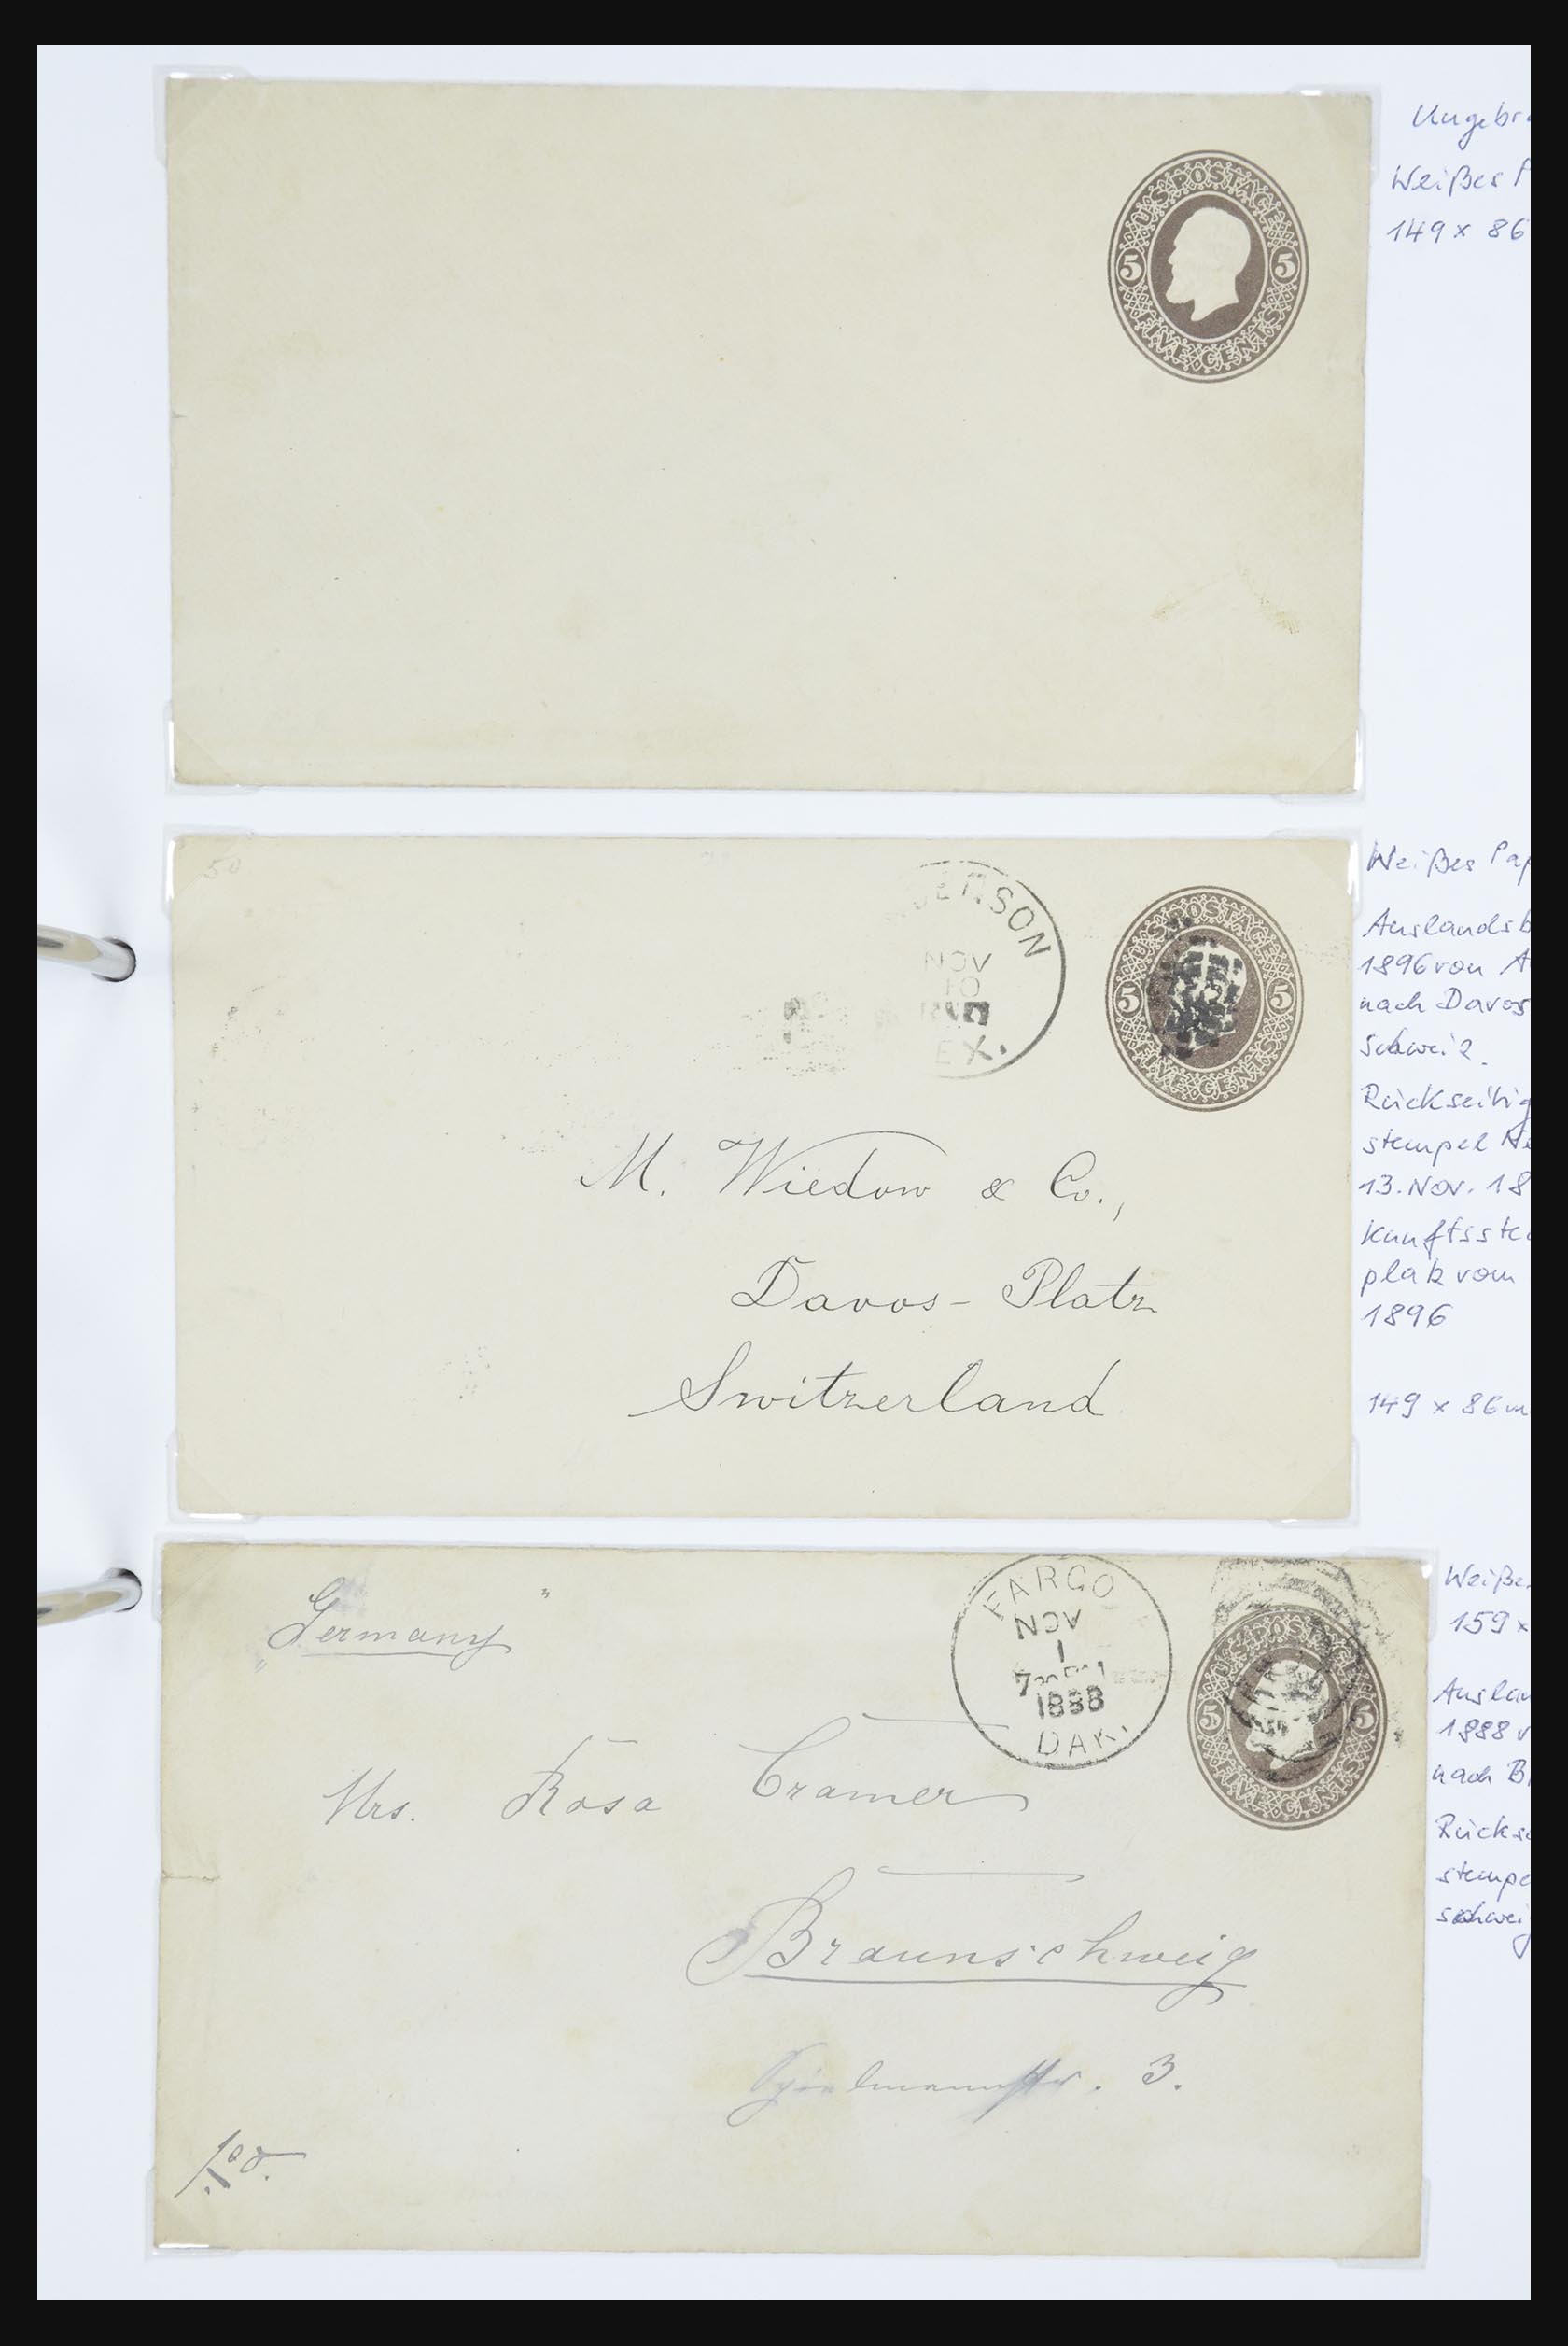 Ungebr
Weißes P
149 x 86
U.S. POSTAGE
5 5
FIVE CENTS
50
SON
NOV
10
EX.
U.S. POSTAGE
5 5
FIVE CENTS
M. Wiedow & Co.,
Davos - Platz
Switzerland
Weißes Pap
Auslandsb
1896 von A
nach Davos
Schweiz.
Rückseitig
stempel Ne
13. Nov. 18
kunftsste
platz vom
1896
149 x 86 m
"Germany"
FARGO
NOV
1
7 30 PM
1888
DAK.
U.S. POSTAGE
5 5
FIVE CENTS
Mrs. Rosa Cramer
Braunschweig
3.
Weiße
159 x
Auslan
1888 v
nach B
Rückse
stempe
schweig